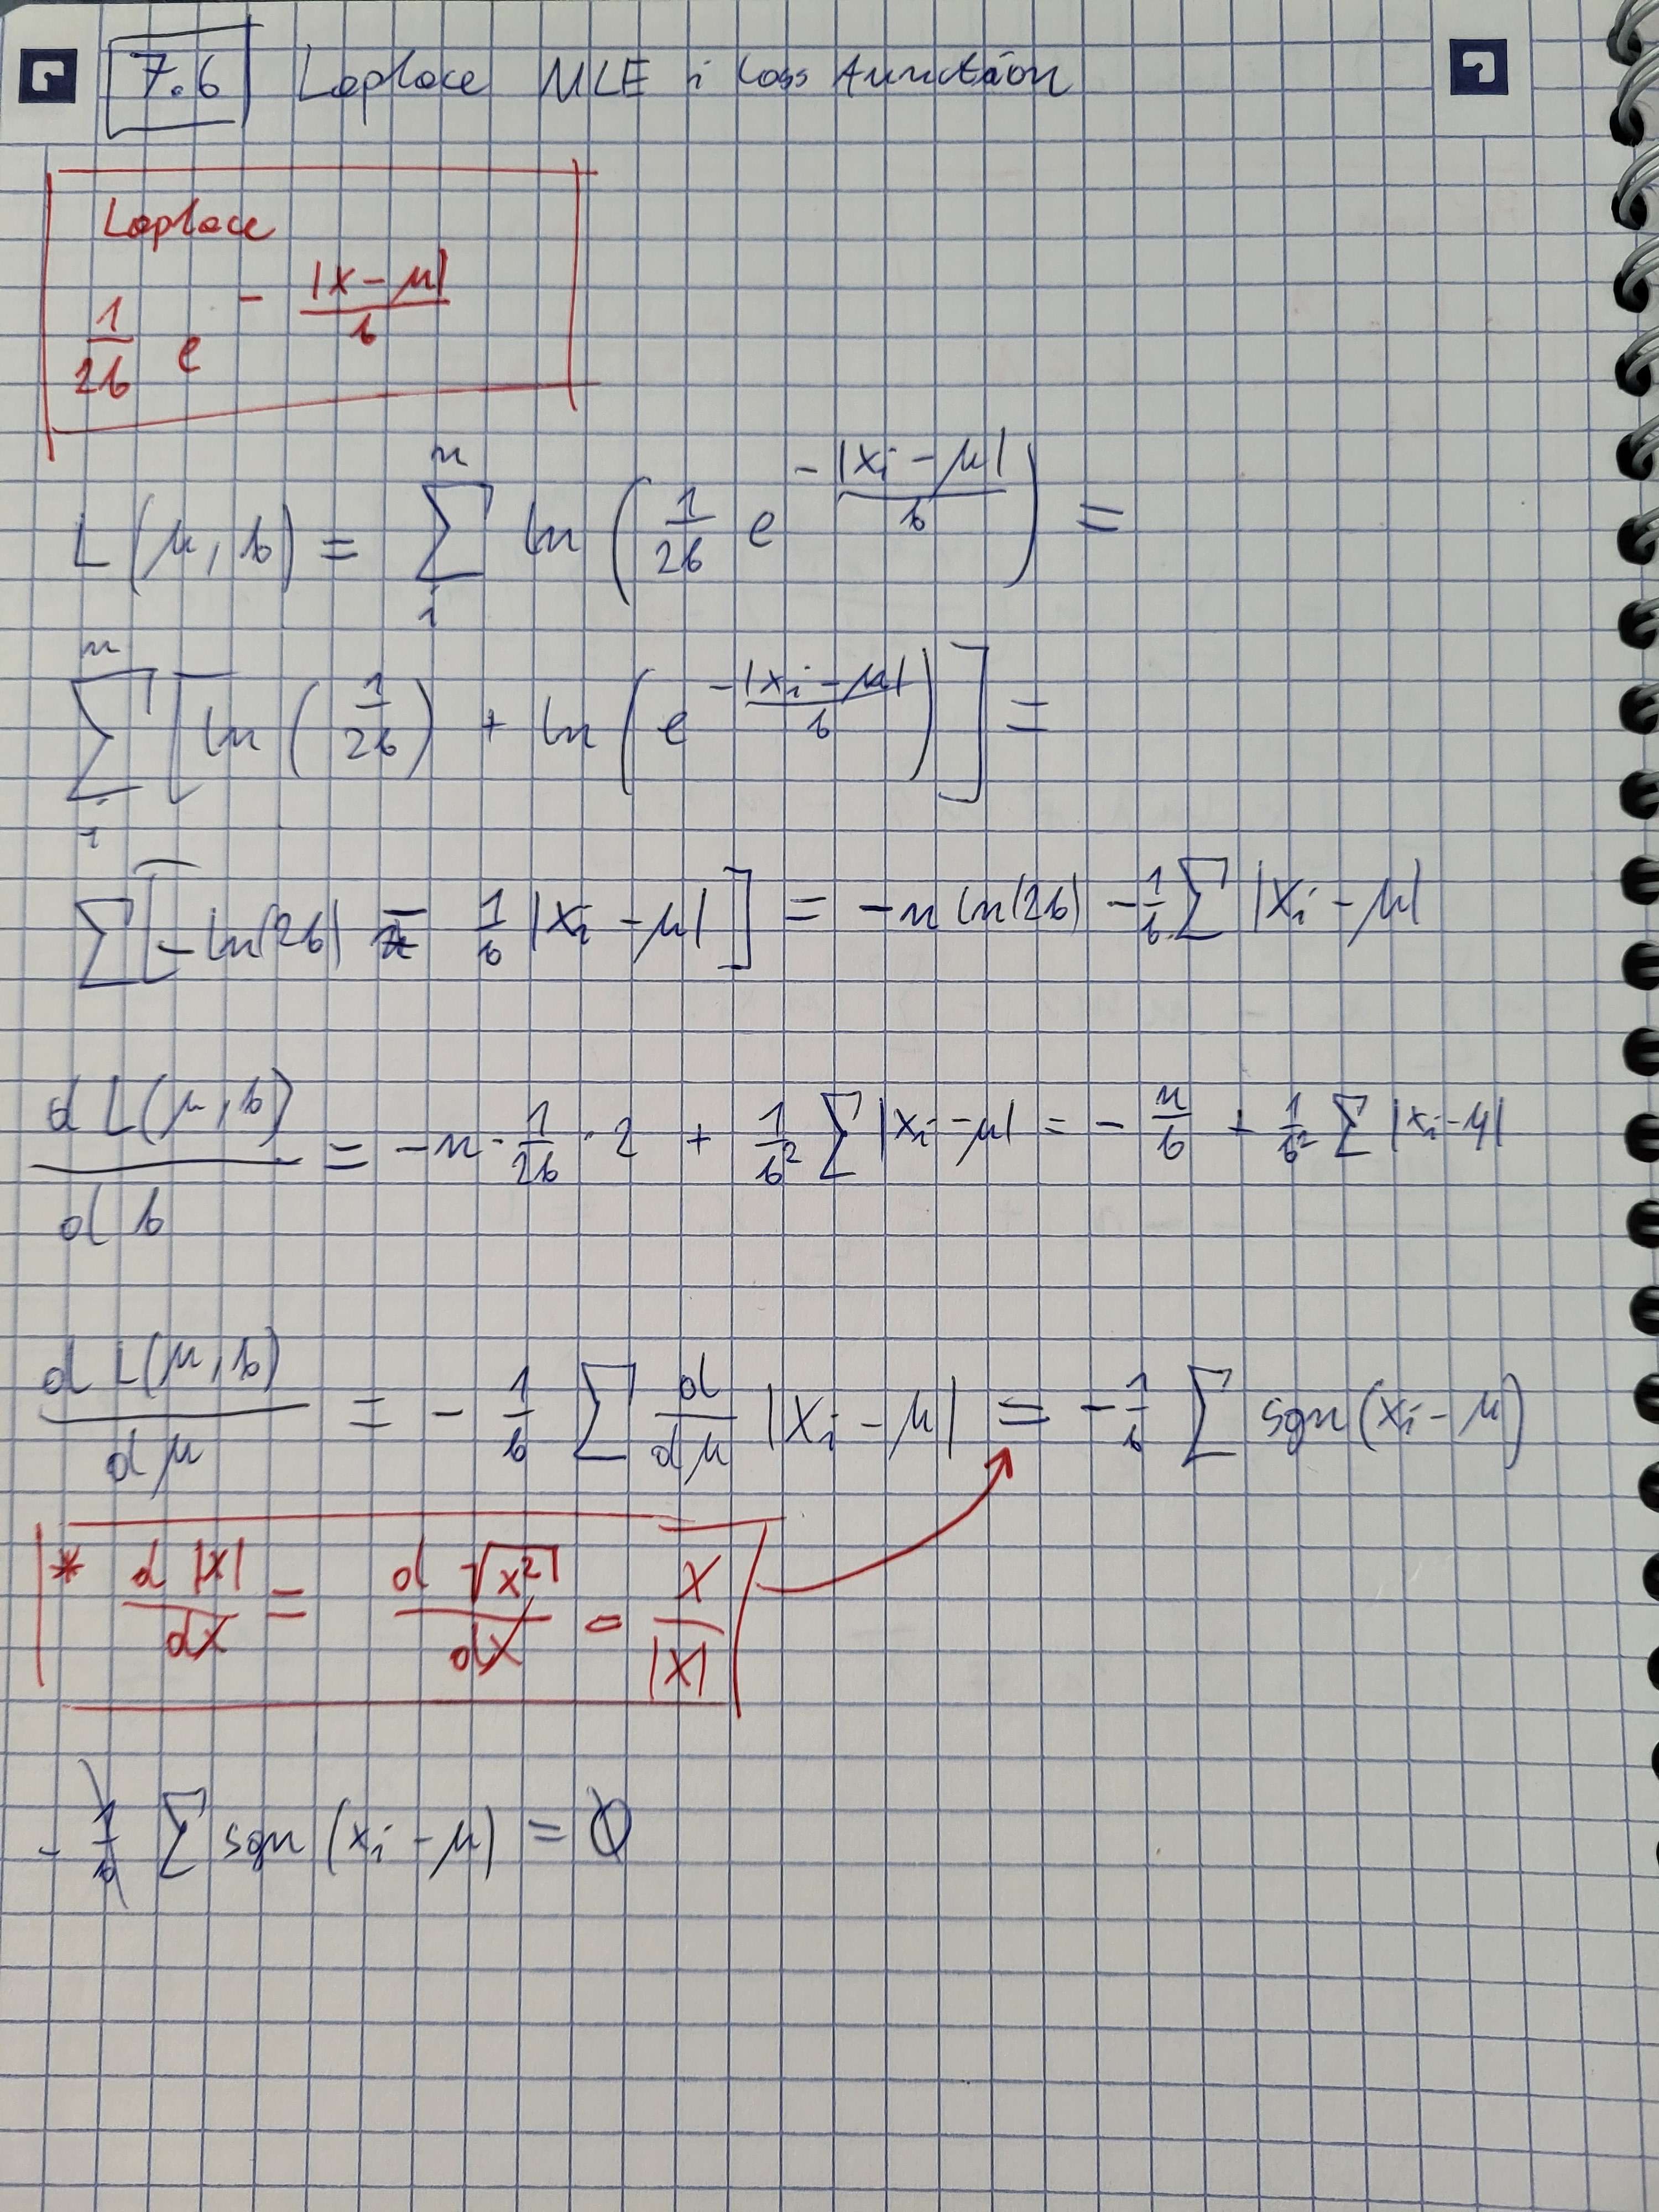 7.6 Laplace MLE i loss function
Laplace
1/(2b) e^(- |x-μ|/b)
L(μ,b) = Σ_1^n ln(1/(2b) e^(-|x_i-μ|/b)) =
Σ_1^n [ln(1/(2b)) + ln(e^(-|x_i-μ|/b))] =
Σ[-ln(2b) - 1/b |x_i-μ|] = -n ln(2b) - 1/b Σ |x_i-μ|
dL(μ,b)/db = -n · 1/(2b) · 2 + 1/b² Σ |x_i-μ| = - n/b + 1/b² Σ |x_i-μ|
dL(μ,b)/dμ = - 1/b Σ d/dμ |x_i-μ| = - 1/b Σ sgn(x_i-μ)
* d|x|/dx = d√(x²)/dx = x/|x|
- 1/b Σ sgn(x_i-μ) = 0